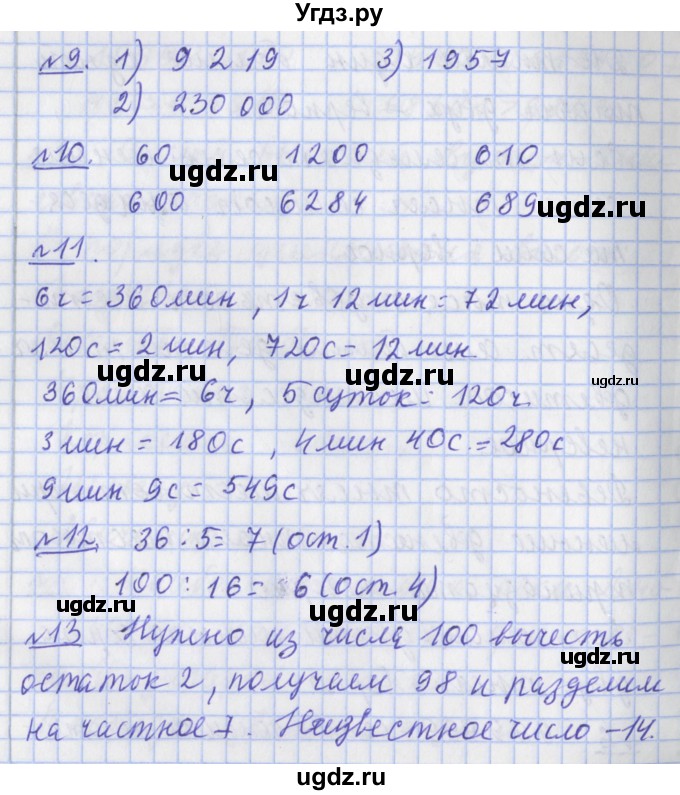 Угдз.ру
№9. 1) 9 219 3) 1957
2) 230 000
№10. 60 1200 610
ugdz.ru
600 6284 689
ugdz.ru
№11.
6ч = 360мин, 1ч 12мин = 72мин,
120с = 2мин, 720с = 12мин.
ugdz.ru ugdz.ru
360мин = 6ч, 5 суток = 120ч.
3мин = 180с, 4мин 40с. = 280с
9мин 9с = 549с
№12. 36 : 5 = 7 (ост. 1)
ugdz.ru
100 : 16 = 6 (ост. 4)
ugdz.ru
№13 Нужно из числа 100 вычесть
ugdz.ru
остаток 2, получаем 98 и разделим
на частное 7. Неизвестное число – 14.
ugdz.ru
ugdz.ru